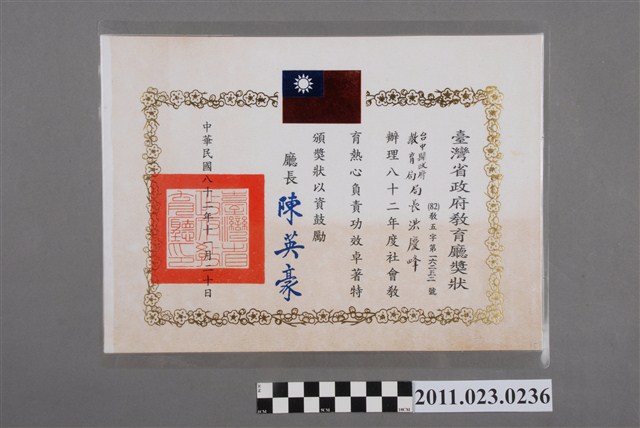 臺灣省政府教育廳獎狀
(82)教五字第一六三三二號
台中縣政府
教育局局長洪慶峰
辦理八十二年度社會教
育熱心負責功效卓著特
頒獎狀以資鼓勵
廳長 陳英豪
中華民國八十二年十一月二十日
臺灣省政府教育廳印
2011.023.0236